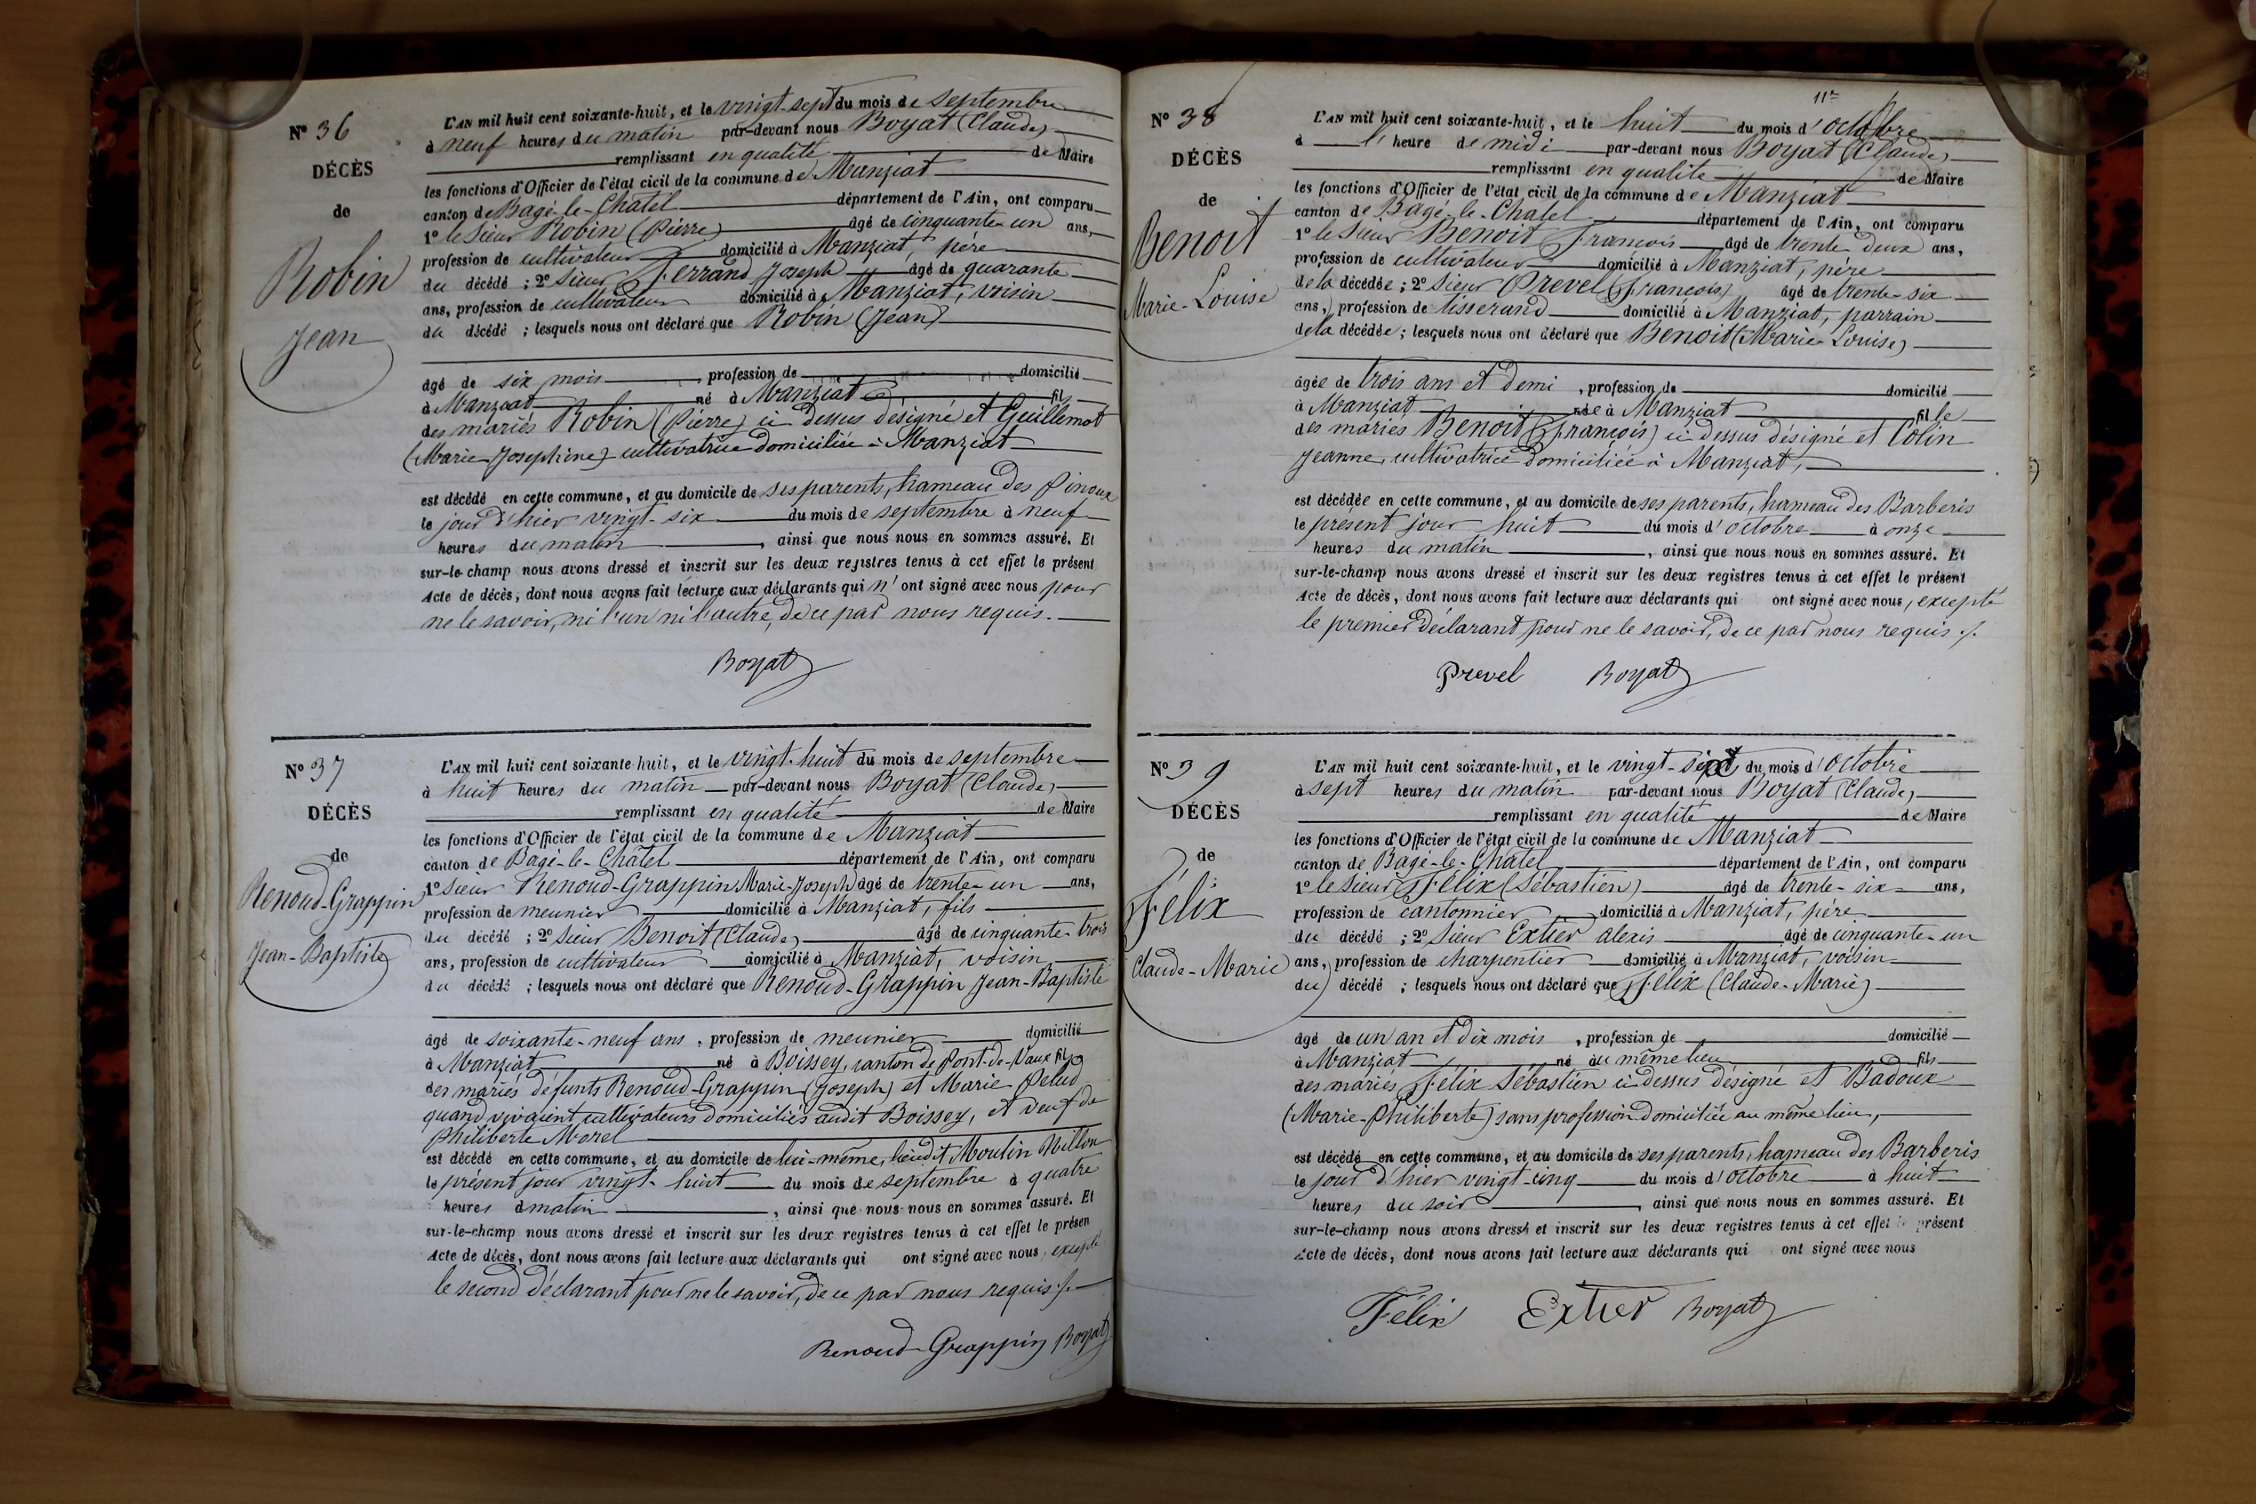 N° 36
DÉCÈS
de
Robin
Jean
L'AN mil huit cent soixante-huit, et le vingt-sept du mois de septembre
à neuf heures du matin par-devant nous Boyat (Claude)
remplissant en qualité de Maire
les fonctions d'Officier de l'état civil de la commune de Manziat
canton de Bagé-le-Chatel département de l'Ain, ont comparu
1° le sieur Robin (Pierre) âgé de cinquante-un ans,
profession de cultivateur domicilié à Manziat, père
du décédé ; 2° sieur Ferrand Joseph âgé de quarante
ans, profession de cultivateur domicilié à Manziat, voisin
du décédé ; lesquels nous ont déclaré que Robin (Jean)
âgé de six mois, profession de domicilié
à Manziat né à Manziat fils
des mariés Robin (Pierre) ci-dessus désigné et Guillemot
(Marie-Josephine) cultivatrice domiciliée à Manziat
est décédé en cette commune, et au domicile de ses parents, hameau des Pinoux
le jour d'hier vingt-six du mois de septembre à neuf
heures du matin, ainsi que nous nous en sommes assuré. Et
sur-le-champ nous avons dressé et inscrit sur les deux registres tenus à cet effet le présent
Acte de décès, dont nous avons fait lecture aux déclarants qui n'ont signé avec nous pour
ne le savoir, ni l'un ni l'autre, de ce par nous requis.
Boyat
N° 37
DÉCÈS
de
Renoud-Grappin
Jean-Baptiste
L'AN mil huit cent soixante-huit, et le vingt-huit du mois de septembre
à huit heures du matin par-devant nous Boyat (Claude)
remplissant en qualité de Maire
les fonctions d'Officier de l'état civil de la commune de Manziat
canton de Bagé-le-Châtel département de l'Ain, ont comparu
1° sieur Renoud-Grappin Marie-Joseph âgé de trente-un ans,
profession de meunier domicilié à Manziat, fils
du décédé ; 2° sieur Benoit (Claude) âgé de cinquante-trois
ans, profession de cultivateur domicilié à Manziat, voisin
du décédé ; lesquels nous ont déclaré que Renoud-Grappin Jean-Baptiste
âgé de soixante-neuf ans, profession de meunier domicilié
à Manziat né à Boissey, canton de Pont-de-Vaux fils
des mariés défunts Renoud-Grappin (Joseph) et Marie Pelud
quand vivaient cultivateurs domiciliés audit Boissey, et veuf de
Philiberte Morel
est décédé en cette commune, et au domicile de lui-même, lieudit Moulin Millon
le présent jour vingt-huit du mois de septembre à quatre
heures d matin, ainsi que nous nous en sommes assuré. Et
sur-le-champ nous avons dressé et inscrit sur les deux registres tenus à cet effet le présen
Acte de décès, dont nous avons fait lecture aux déclarants qui ont signé avec nous, excepté
le second déclarant pour ne le savoir, de ce par nous requis ./.
Renoud-Grappin Boyat
11e
N° 38
DÉCÈS
de
Benoit
Marie-Louise
L'AN mil huit cent soixante-huit, et le huit du mois d'octobre
à l'heure de midi par-devant nous Boyat (Claude)
remplissant en qualité de Maire
les fonctions d'Officier de l'état civil de la commune de Manziat
canton de Bagé-le-Chatel département de l'Ain, ont comparu
1° le sieur Benoit François âgé de trente-deux ans,
profession de cultivateur domicilié à Manziat, père
de la décédée ; 2° sieur Prevel (François) âgé de trente-six
ans, profession de tisserand domicilié à Manziat, parrain
de la décédée ; lesquels nous ont déclaré que Benoit (Marie-Louise)
âgée de trois ans et demi, profession de domicilié
à Manziat née à Manziat fille
des mariés Benoit (François) ci-dessus désigné et Colin
Jeanne, cultivatrice domiciliée à Manziat,
est décédée en cette commune, et au domicile de ses parents, hameau des Barberis
le présent jour huit du mois d'octobre à onze
heures du matin, ainsi que nous nous en sommes assuré. Et
sur-le-champ nous avons dressé et inscrit sur les deux registres tenus à cet effet le présent
Acte de décès, dont nous avons fait lecture aux déclarants qui ont signé avec nous, excepté
le premier déclarant pour ne le savoir, de ce par nous requis ./.
Prevel Boyat
N° 39
DÉCÈS
de
Félix
Claude-Marie
L'AN mil huit cent soixante-huit, et le vingt-sept du mois d'octobre
à sept heures du matin par-devant nous Boyat (Claude)
remplissant en qualité de Maire
les fonctions d'Officier de l'état civil de la commune de Manziat
canton de Bagé-le-Châtel département de l'Ain, ont comparu
1° le sieur Félix (Sébastien) âgé de trente-six ans,
profession de cantonnier domicilié à Manziat, père
du décédé ; 2° sieur Extier alexis âgé de cinquante-un
ans, profession de charpentier domicilié à Manziat, voisin
du décédé ; lesquels nous ont déclaré que Félix (Claude-Marie)
âgé de un an et dix mois, profession de domicilié
à Manziat né au même lieu fils
des mariés Félix Sébastien ci-dessus désigné et Badoux
(Marie-Philiberte) sans profession domiciliée au même lieu,
est décédé en cette commune, et au domicile de ses parents, hameau des Barberis
le jour d'hier vingt-cinq du mois d'octobre à huit
heures du soir, ainsi que nous nous en sommes assuré. Et
sur-le-champ nous avons dressé et inscrit sur les deux registres tenus à cet effet le présent
Acte de décès, dont nous avons fait lecture aux déclarants qui ont signé avec nous
Félix Extier Boyat